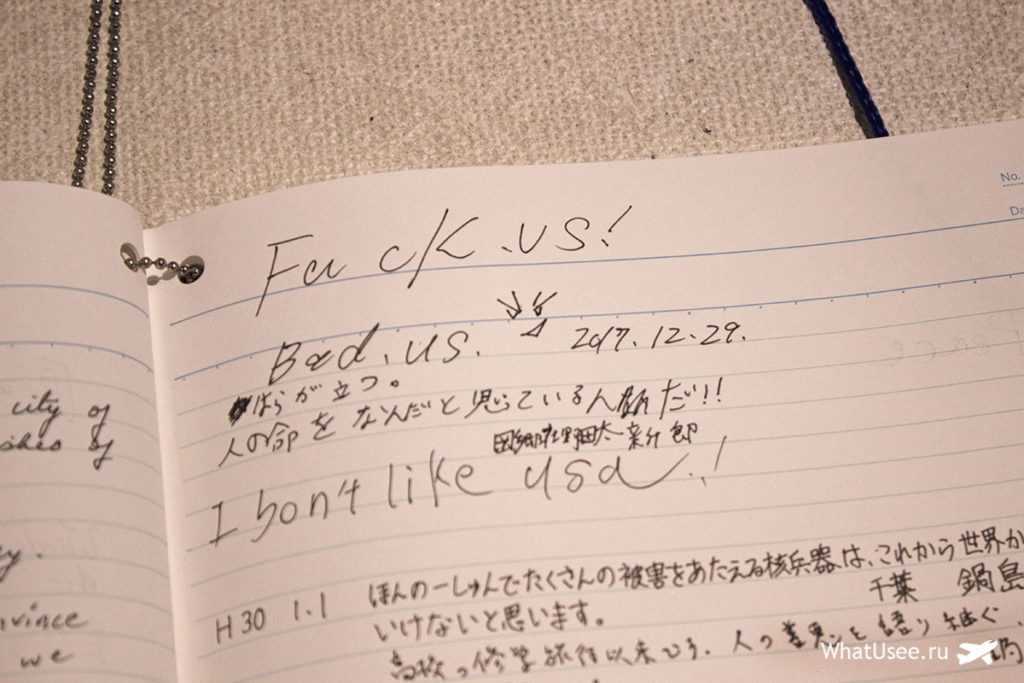 city of
shes of
y.
vince
we
No.
Da
Fuck.us!
Bad.us.
2017.12.29.
はらが立つ。
人の命をなんだと思っている人類だ!!
I Don't like usa.!
H30 1.1 ほんの一しゅんでたくさんの被害をあたえる核兵器は、これから世界か
いけないと思います。
千葉 鍋島
高校の修学旅行以来ひろ、人の
WhatUsee.ru